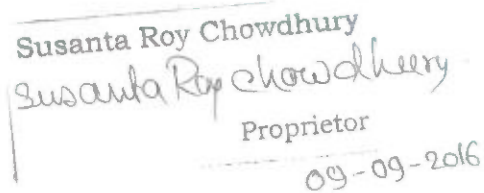 Susanta Roy Chowdhury
Susanta Roy Chowdhury
Proprietor
09-09-2016